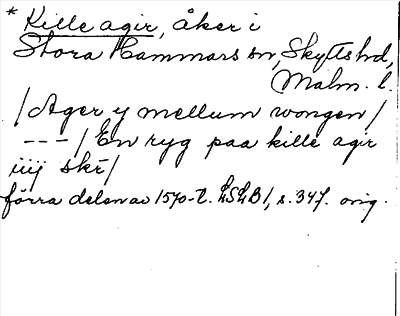 * Kille agir, åker i
Stora Hammars sn, Skytts hd,
Malm. l.
/Ager y mellum wongen/
---/En ryg paa kille agir
iiij skr/
förra delen av 1570-t. LSLB1, s. 347. orig.